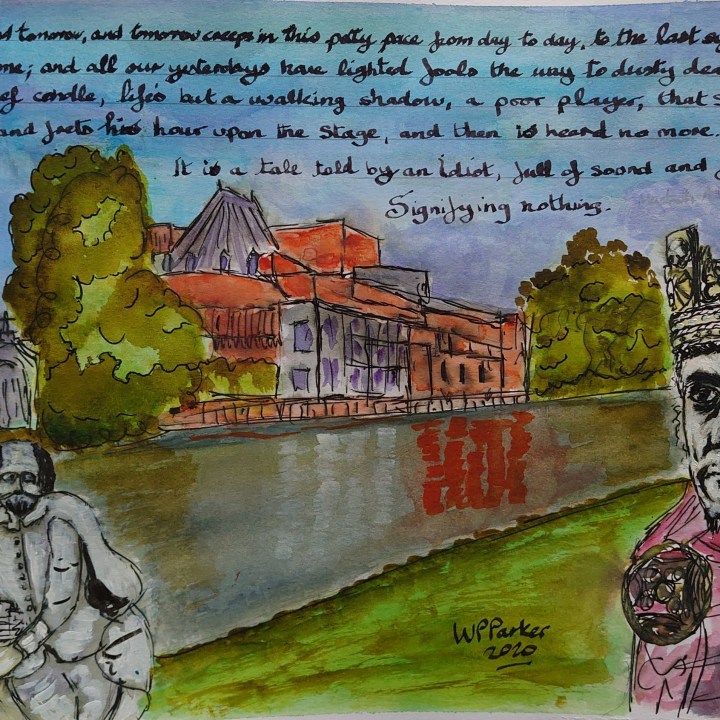 d tomorrow, and tomorrow creeps in this petty pace from day to day, to the last sy
me; and all our yesterdays have lighted fools the way to dusty dea
ef candle, life's but a walking shadow, a poor player, that s
and frets his hour upon the stage, and then is heard no more.
It is a tale told by an idiot, full of sound and f
Signifying nothing.
WPParker
2020